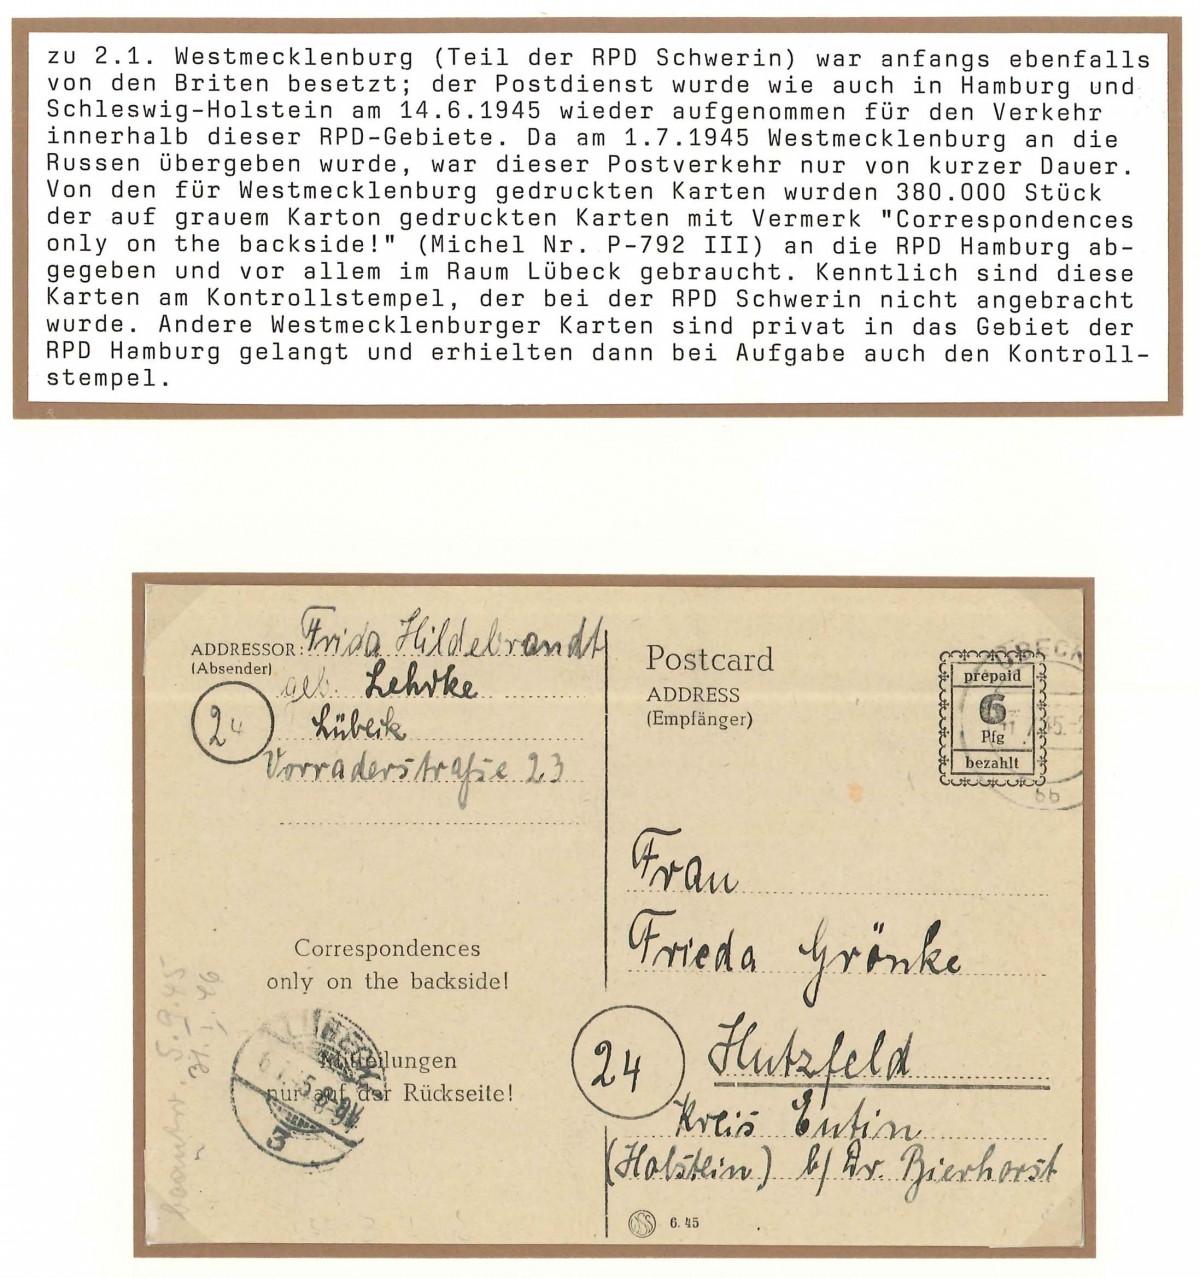 zu 2.1. Westmecklenburg (Teil der RPD Schwerin) war anfangs ebenfalls
von den Briten besetzt; der Postdienst wurde wie auch in Hamburg und
Schleswig-Holstein am 14.6.1945 wieder aufgenommen für den Verkehr
innerhalb dieser RPD-Gebiete. Da am 1.7.1945 Westmecklenburg an die
Russen übergeben wurde, war dieser Postverkehr nur von kurzer Dauer.
Von den für Westmecklenburg gedruckten Karten wurden 380.000 Stück
der auf grauem Karton gedruckten Karten mit Vermerk "Correspondences
only on the backside!" (Michel Nr. P-792 III) an die RPD Hamburg ab-
gegeben und vor allem im Raum Lübeck gebraucht. Kenntlich sind diese
Karten am Kontrollstempel, der bei der RPD Schwerin nicht angebracht
wurde. Andere Westmecklenburger Karten sind privat in das Gebiet der
RPD Hamburg gelangt und erhielten dann bei Aufgabe auch den Kontroll-
stempel.
ADDRESSOR: Frida Hildebrandt
(Absender) geb. Lehrke
24 Lübeck
Vorraderstraße 23
Correspondences
only on the backside!
Mitteilungen
nur auf der Rückseite!
3
5.9.45
Postcard
ADDRESS
(Empfänger)
prepaid
6
Pfg
bezahlt
bb
Frau
Frieda Grönke
24 Hutzfeld
Kreis Eutin
(Holstein) b/ Dr. Bierhorst
6.45